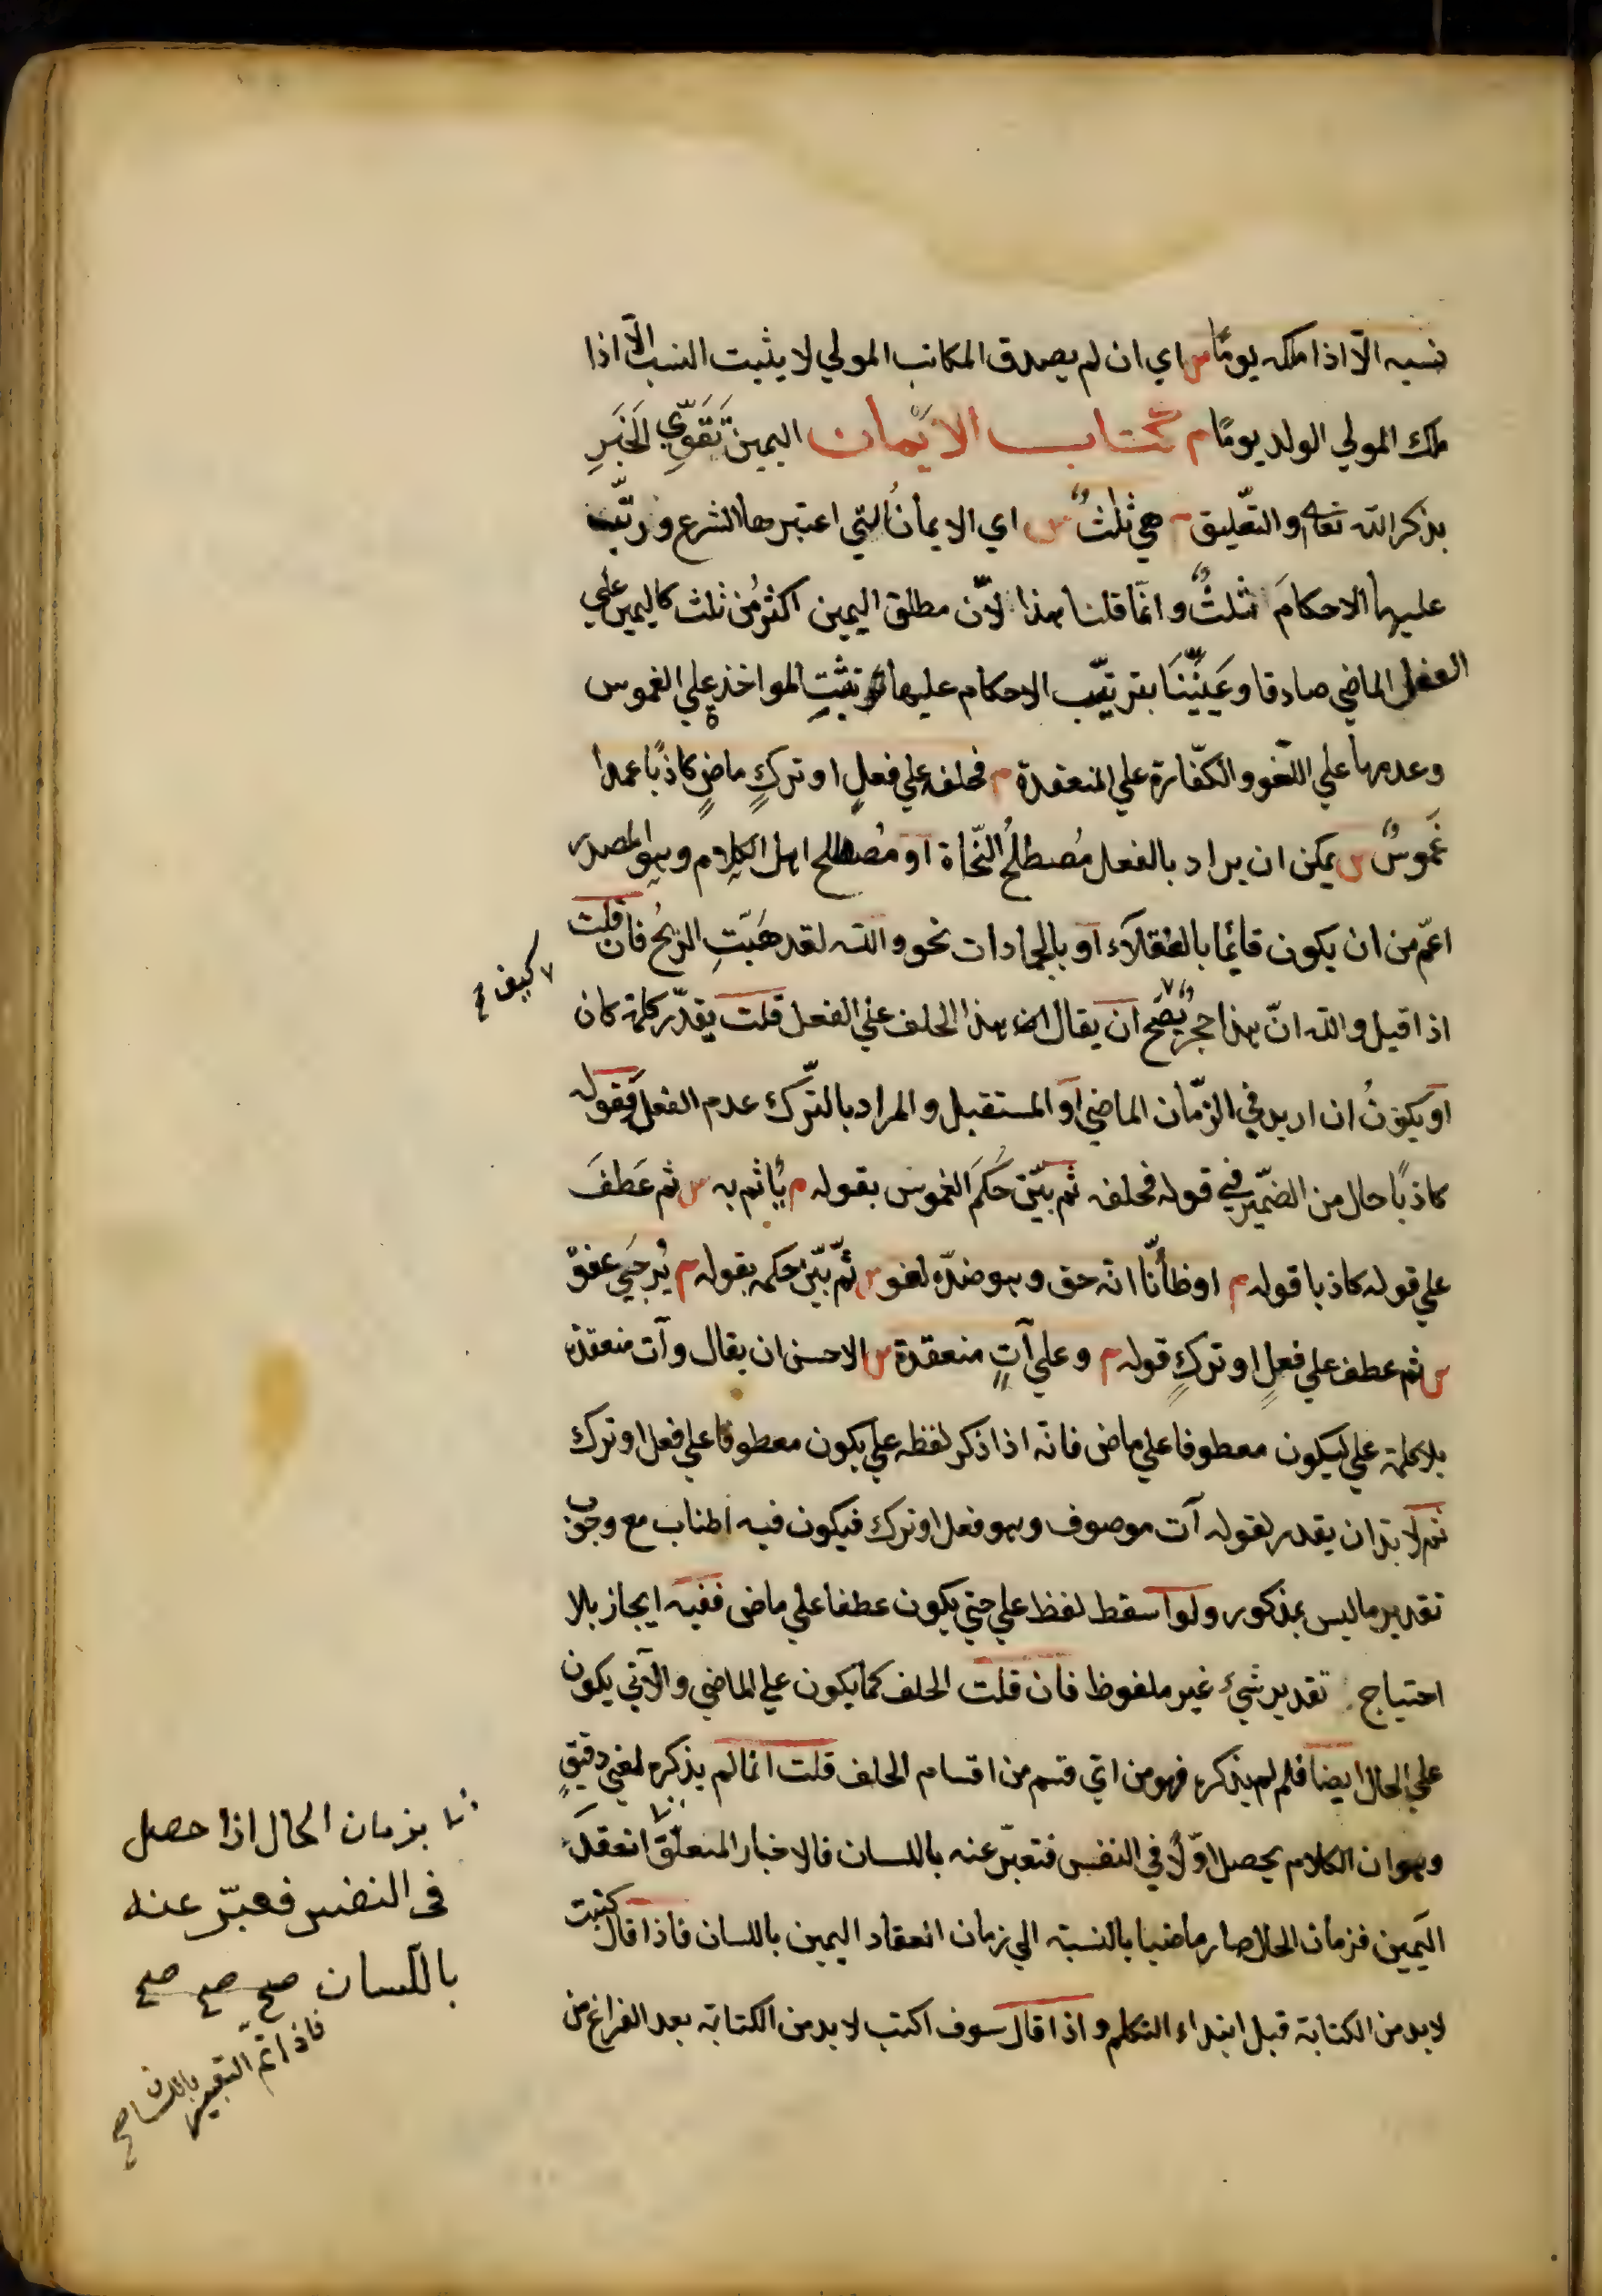 نسبه الّا اذا ملكه يومًا س اي ان لم يصدق المكاتب المولي لا يثبت النسب الّا اذا
ملك المولي الولد يومًا م كتاب الايمان اليمين تَقَوِّي الخَبَرِ
بذكر الله تعالى والتعليق م هي ثلثٌ س اي الايمانُ التي اعتبرها الشرع ورتّب
عليها الاحكامَ ثلثٌ وانّما قلنا هذا لانّ مطلق اليمين اكثرُ من ثلث كاليمين علي
الفعل الماضي صادقا وعَيَّنَّا بترتيب الاحكام عليها ترتّبِ المواخذةِ علي الغموس
وعدمها علي اللّغو والكفّارة علي المنعقدة م فحلفه علي فعلٍ او تركٍ ماضٍ كاذبًا عمدا
غَموسٌ س يمكن ان يراد بالفعل مُصطلحُ النّحاة او مُصطلح اهل الكلام وهو المصدر
اعمّ من ان يكون قائما بالعقلاء او بالجمادات نحو والله لقد هَبّتِ الريحُ فان قلت
اذا قيل والله انّ هذا حجرٌ يصحّ ان يقال ان هذا الحلف علي الفعل قلت يقدّر كلمة كان
او يكونُ ان اريد في الزّمان الماضي او المستقبل والمراد بالتّرك عدم الفعل فقوله
كاذبًا حال من الضّمير في قوله فحلفه ثم بيّن حُكمَ الغموس بقوله م يأثم به س ثم عَطفَ
علي قوله كاذبا قوله م او ظانّا انّه حق وهو ضدّه لغو س ثمّ بيّن حكمه بقوله م يُرجَي عفوه
س ثم عطف علي فعلٍ او تركٍ قوله م وعلي آتٍ منعقدة س الاحسن ان يقال وآت منعقدة
بلا كلمة علي ليكون معطوفا علي ماض فانّه اذا ذكر لفظه علي يكون معطوفا علي فعل او ترك
ثم لا بدّ ان يقدر لقوله آت موصوف وهو فعل او ترك فيكون فيه اطناب مع وجوب
تقدير ما ليس بمذكور ولو اسقط لفظ علي حتي يكون عطفا علي ماض ففيه ايجاز بلا
احتياج تقدير شيء غير ملفوظ فان قلت الحلف كما يكون علي الماضي والآتي يكون
علي الحال ايضا فلم لم يذكره فهو من ايّ قسم من اقسام الحلف قلت انما لم يذكره لمعني دقيقٍ
وهو ان الكلام يحصل اوّلًا في النفس فتعبّر عنه باللسان فالاخبار المتعلّق انعقد
اليمين فزمان الحال صار ماضيا بالنسبة الي زمان انعقاد اليمين باللسان فاذا قال كتبت
لا بد من الكتابة قبل ابتداء التكلم واذا قال سوف اكتب لا بد من الكتابة بعد الفراغ من
كيف صح
بزمان الحال اذا حصل
في النفس فعبّر عنه
باللسان صح صح صح
فاذا تمّ التعبير باللسان صح